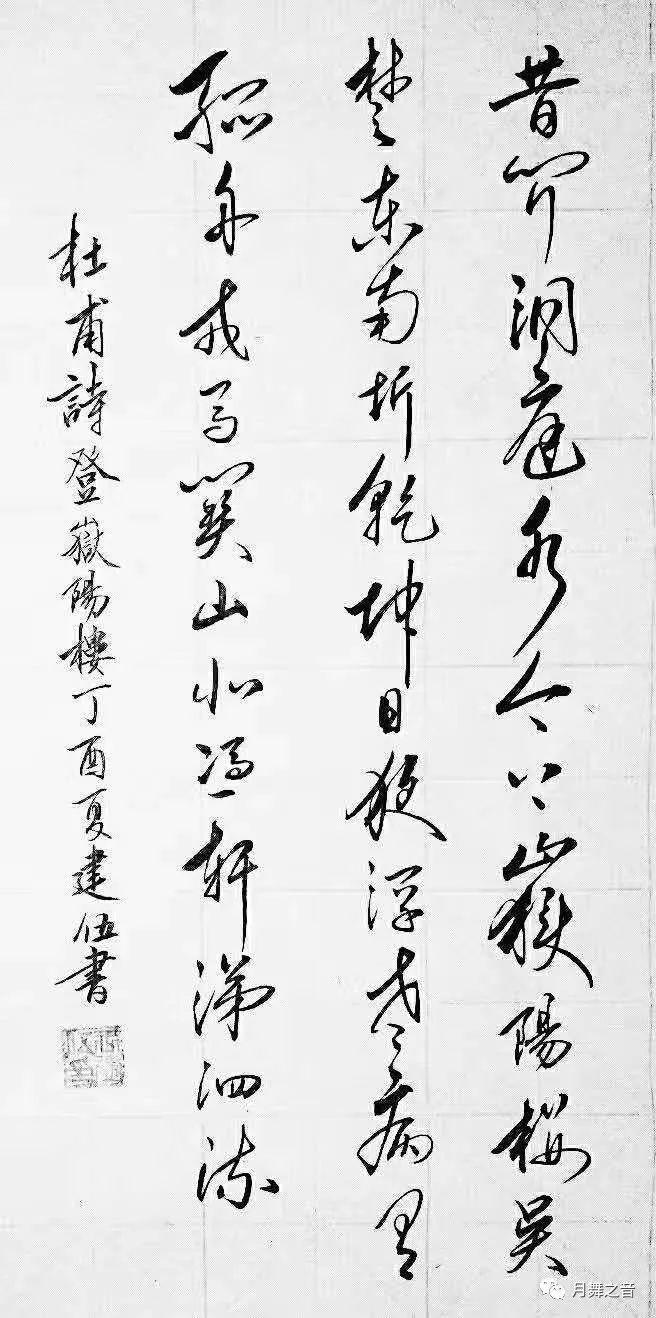 昔聞洞庭水今上嶽陽樓吳
楚東南坼乾坤日夜浮老病有
孤舟戎馬關山北憑軒涕泗流
杜甫詩登嶽陽樓丁酉夏建伍書
月舞之音